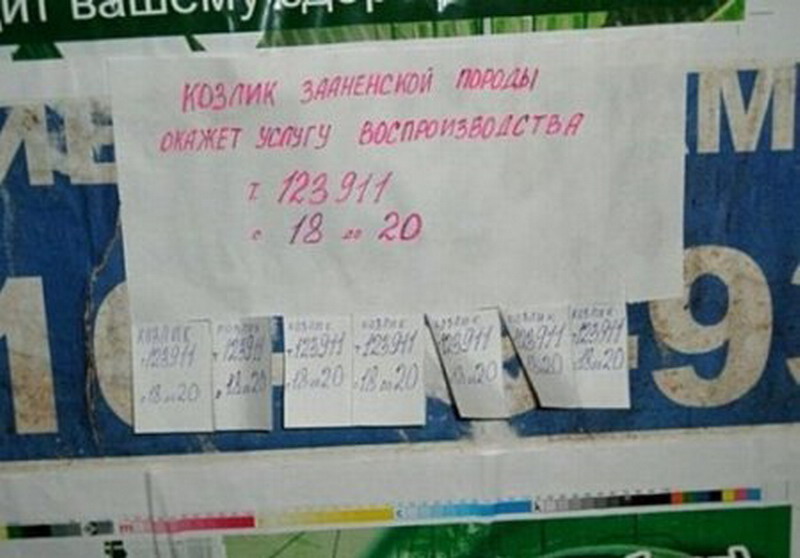 дит вашему
КОЗЛИК ЗААНЕНСКОЙ ПОРОДЫ
ОКАЖЕТ УСЛУГУ ВОСПРОИЗВОДСТВА
Т. 123911
с 18 до 20
КОЗЛИК
т. 123911
с 18 до 20
КОЗЛИК
т. 123911
с 18 до 20
КОЗЛИК
т. 123911
с 18 до 20
КОЗЛИК
т. 123911
с 18 до 20
КОЗЛИК
123911
18 до 20
КОЗЛИК
123911
18 до 20
КОЗЛИК
т. 123911
с 18 до 20